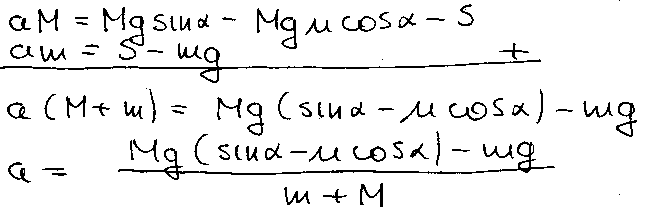 aM = Mg sinα - Mg μ cosα - S
am = S - mg +
a (M + m) = Mg (sinα - μ cosα) - mg
a = Mg (sinα - μ cosα) - mg
m + M